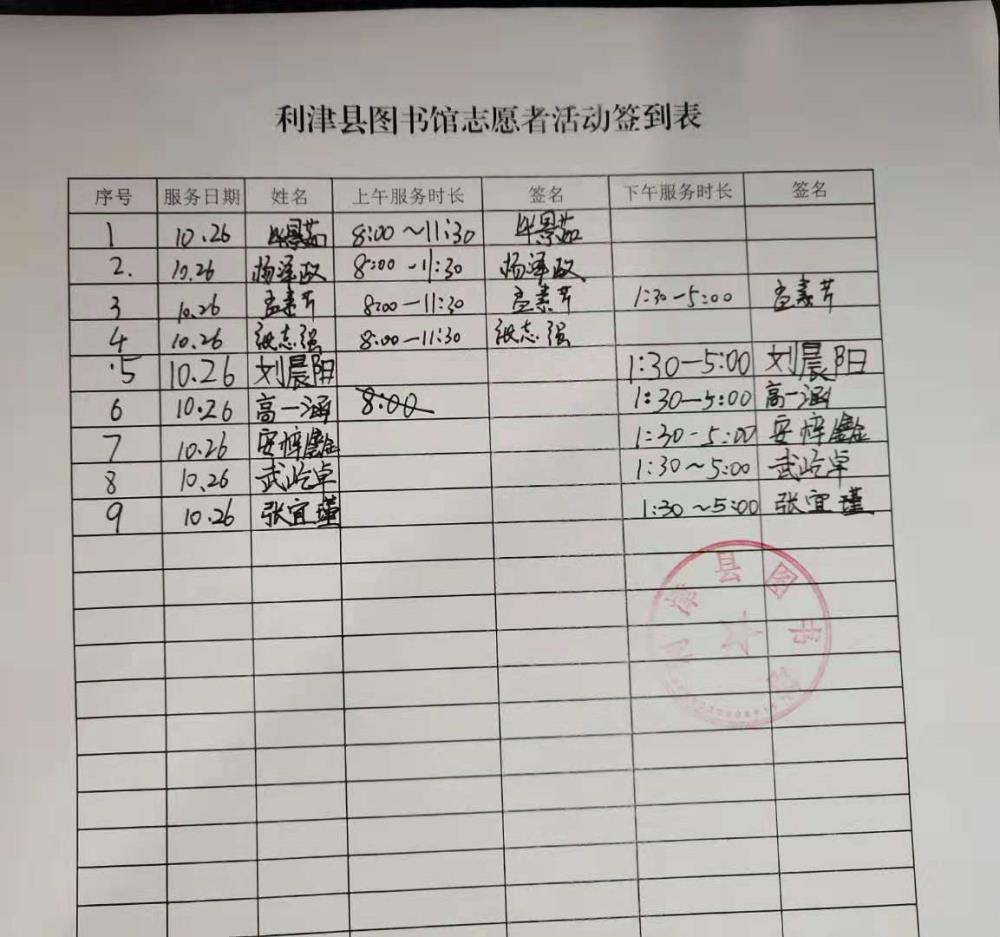 利津县图书馆志愿者活动签到表
序号 服务日期 姓名 上午服务时长 签名 下午服务时长 签名
1 10.26 8:00~11:30
2. 10.26 杨泽政 8:00-11:30 杨泽政
3 10.26 孟素芹 8:00-11:30 孟素芹 1:30-5:00 孟素芹
4 10.26 张志强 8:00-11:30 张志强
5 10.26 刘晨阳 1:30-5:00 刘晨阳
6 10.26 高一涵 8:00 1:30-5:00 高一涵
7 10.26 安梓鑫 1:30-5:00 安梓鑫
8 10.26 武屹卓 1:30~5:00 武屹卓
9 10.26 张宜瑾 1:30~5:00 张宜瑾
利津县图书馆